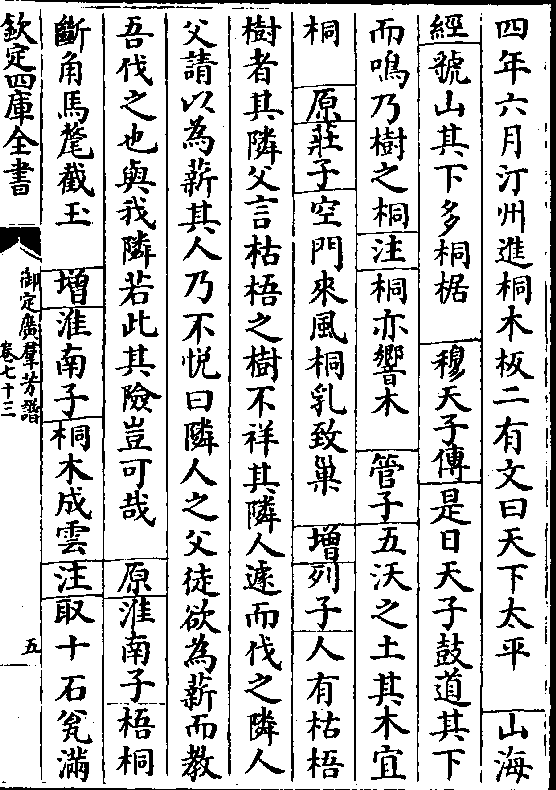 四年六月汀州進桐木板二有文曰天下太平　山海
經號山其下多桐椐　穆天子傳是日天子鼓道其下
而鳴乃樹之桐注桐亦響木　管子五沃之土其木宜
桐　原莊子空門來風桐乳致巢　增列子人有枯梧
樹者其隣父言枯梧之樹不祥其隣人遽而伐之隣人
父請以為薪其人乃不悅曰隣人之父徒欲為薪而教
吾伐之也與我隣若此其險豈可哉　原淮南子梧桐
斷角馬氂截玉　增淮南子桐木成雲注取十石瓮滿
欽定四庫全書
御定廣羣芳譜
卷七十三
五